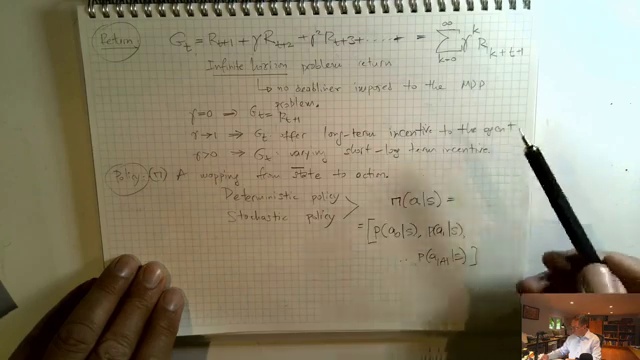 Return G_t = R_{t+1} + γ R_{t+2} + γ² R_{t+3} + ..... + = ∑_{k=0}^{∞} γ^k R_{k+t+1}
Infinite horizon problem return
↳ no deadline imposed to the MDP
problem.
γ=0 → G_t = R_{t+1}
γ→1 → G_t offer long-term incentive to the agent
γ>0 → G_t varying short-log term incentive
Policy (π) A mapping from state to action.
Deterministic policy
Stochastic policy
π(a|s) =
= [p(a_0|s), p(a_1|s),
.. p(a_{|A|}|s)]